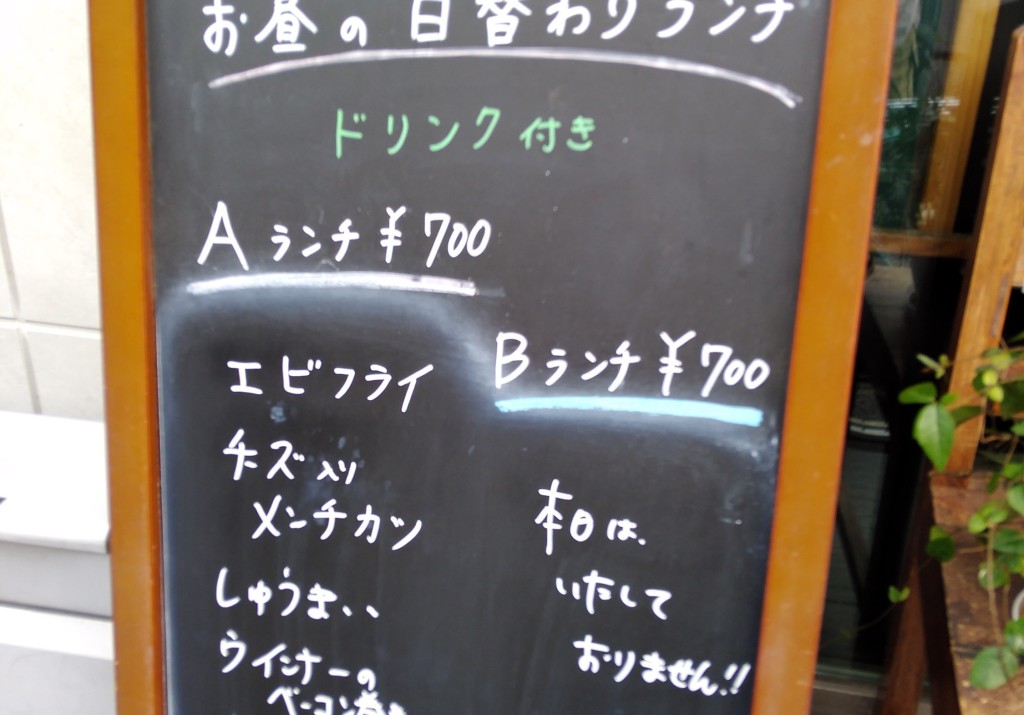 お昼の日替わりランチ
ドリンク付き
Aランチ ¥700
エビフライ
チーズ入り
メンチカツ
しゅうまい
ウインナーの
ベーコン巻き
Bランチ ¥700
本日は、
いたして
おりません!!